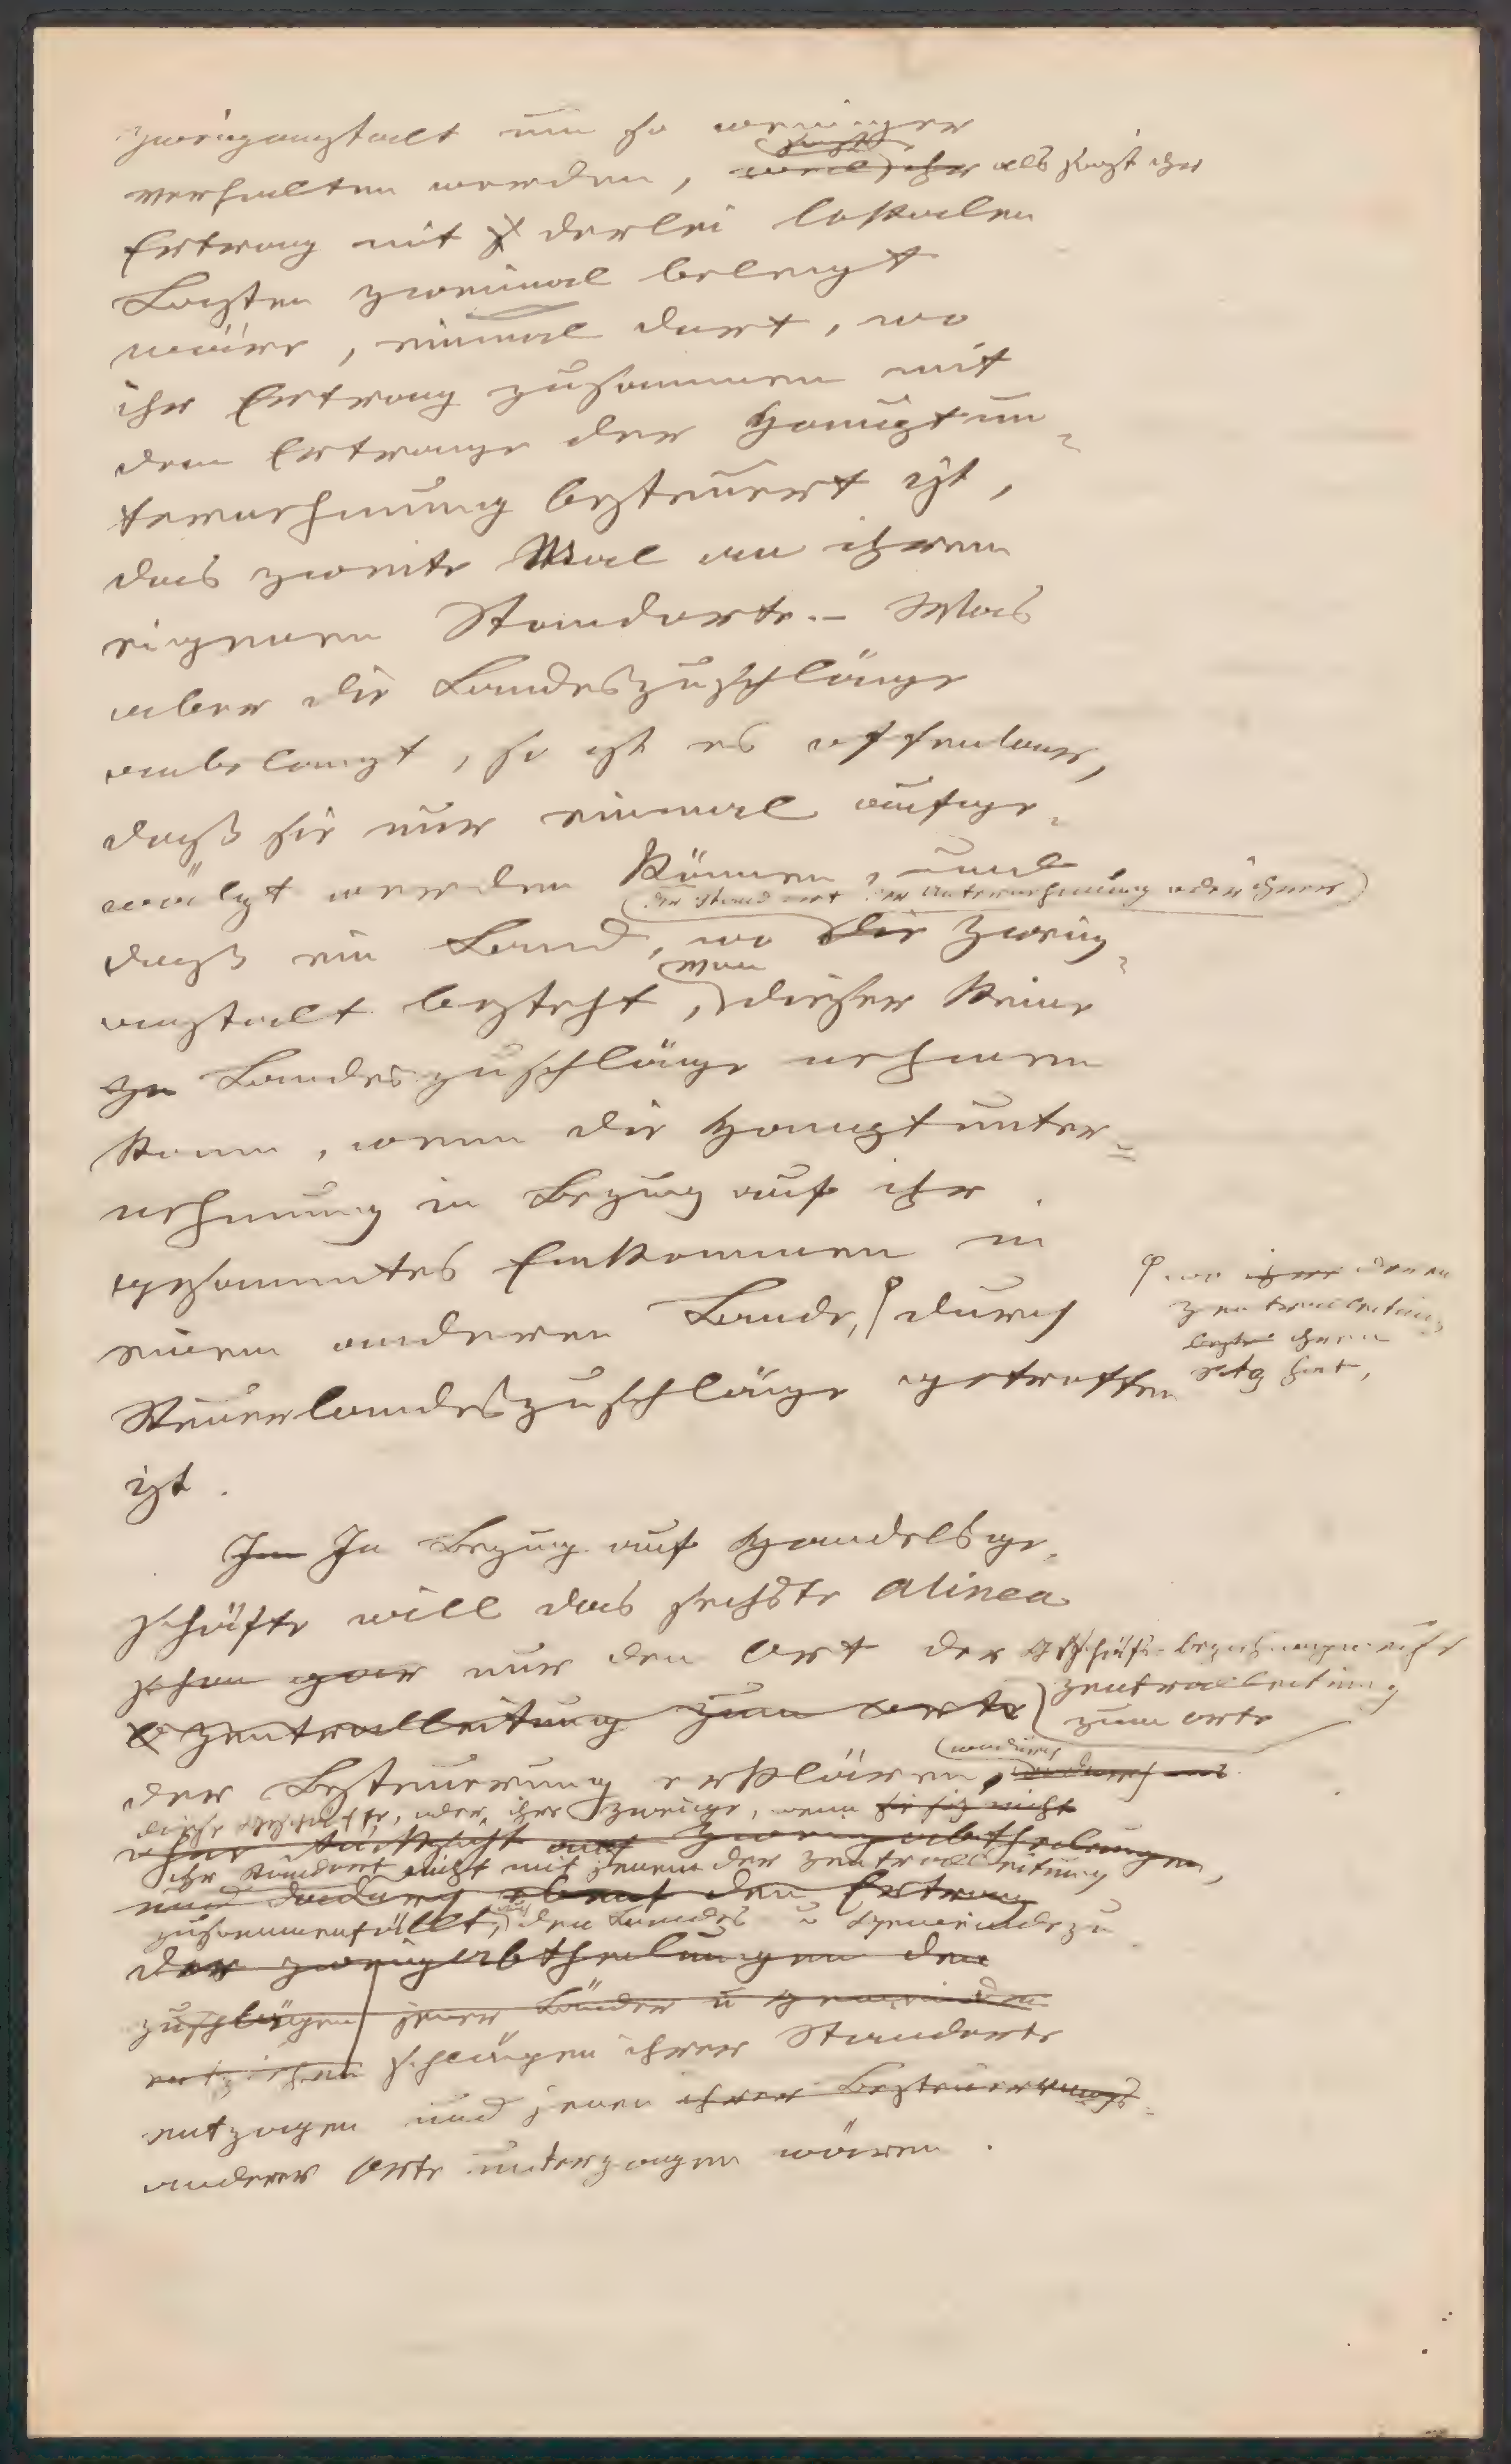 Zweiganstalt um so weniger
verhalten werden, weil sonst ihr als sonst ihr
Ertrag mit derlei lokalen
Lasten zweimal belegt
wäre, einmal dort, wo
ihr Ertrag zusammen mit
dem Ertrage der Hauptun-
ternehmung besteuert ist,
das zweite Mal an ihrem
eigenen Standorte. – Was
aber die Landeszuschläge
anbelangt, so ist es offenbar,
daß sie nur einmal aufge-
wälzt werden können, und
der Standort der Unternehmung oder ihrer
daß ein Land, wo die Zweig-
man
anstalt besteht, dieser keine
Landeszuschläge nehmen
kann, wenn die Hauptunter-
nehmung in Bezug auf ihr
gesammtes Einkommen in
einem anderen Lande, durch
wo ihre deren
Zentralleitung
ihren
Sitz hat,
Steuerlandeszuschläge getroffen
ist.
Im In Bezug auf Handelsge-
schäfte will das sechste alinea
schon gar nur den Ort der Geschäfts-
Zentralleitung zum Orte
Zentralleitung
zum Orte
der Besteuerung erklären, wodurch
diese Geschäfte, oder ihre Zweige, wenn sie sich nicht
ohne Rücksicht auf Zweigabtheilungen,
ihr Standort nicht mit jenem der Zentralleitung
und dadurch den Ertrag
zusammenfällt, den Landes u Gemeindezu
der Zweigabtheilungen den
zuschlägen jener Länder u Gemeinden
entziehen schlägen ihrer Standorte
entzogen und jenen ihrer Besteuerungs-
anderer Orte unterzogen wären.